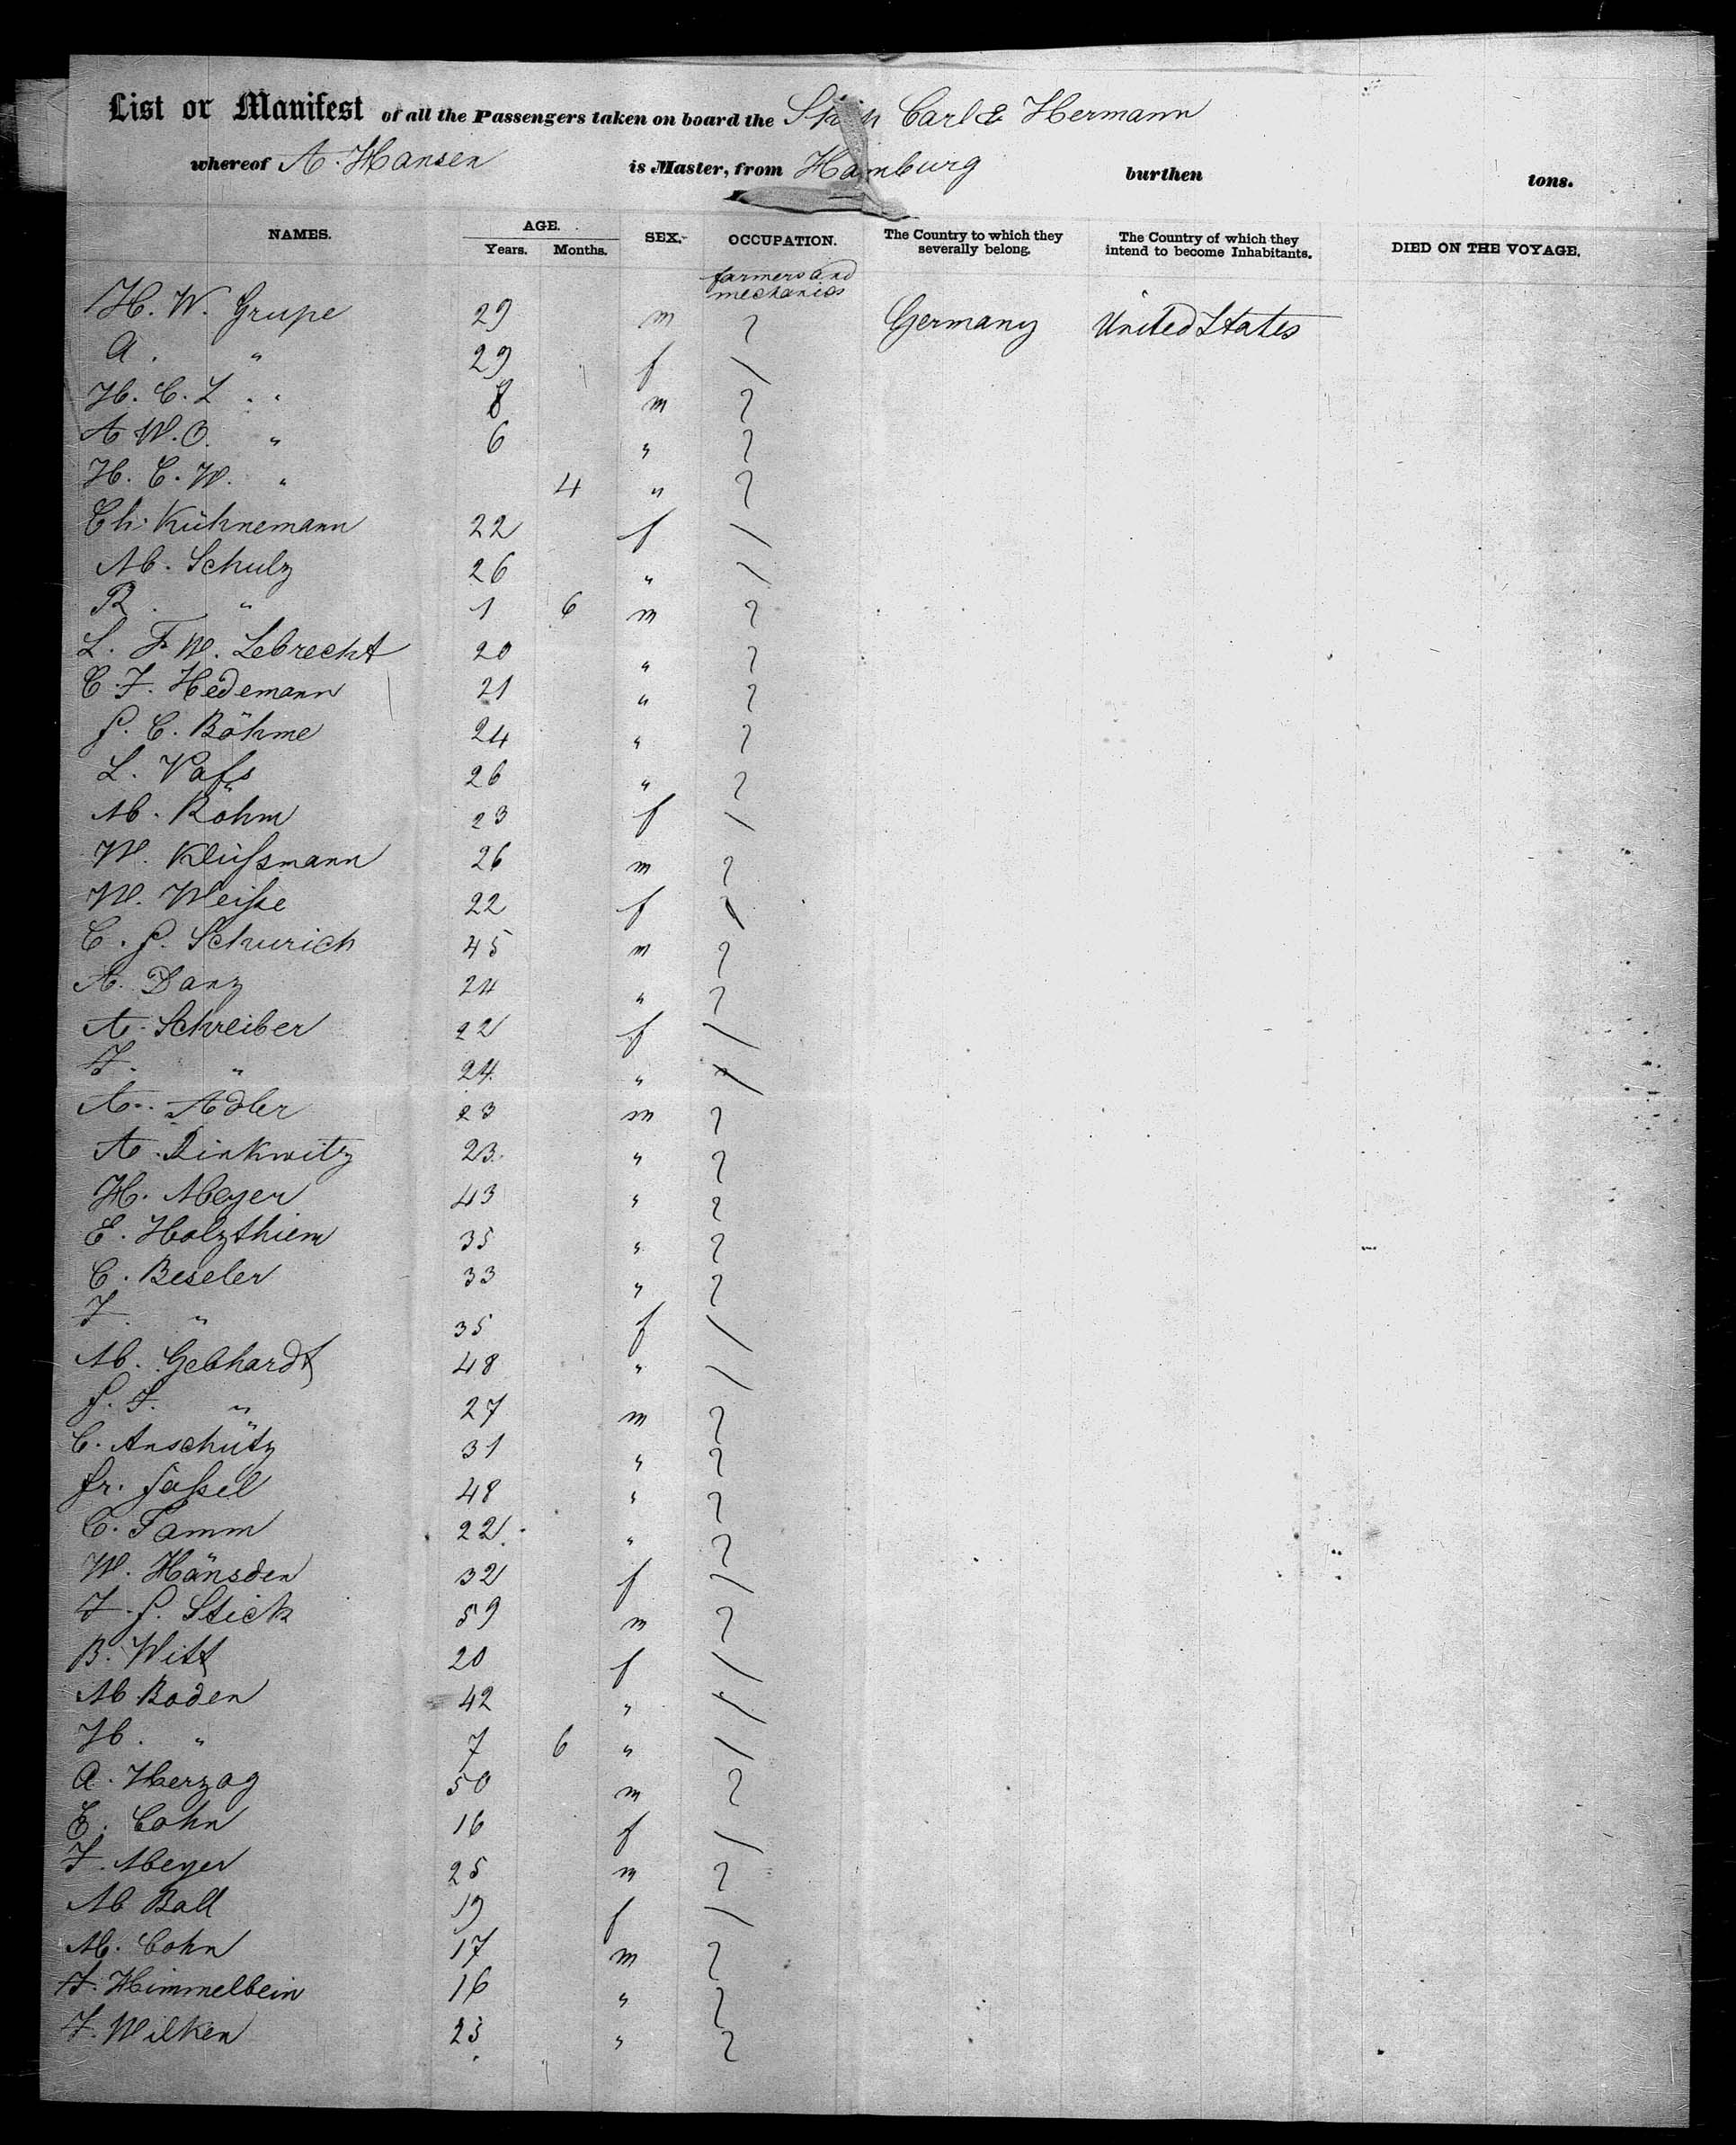 List or Manifest of all the Passengers taken on board the Carl & Hermann
whereof A. Hansen is Master, from Hamburg burthen tons.
NAMES. AGE. SEX. OCCUPATION. The Country to which they severally belong. The Country of which they intend to become Inhabitants. DIED ON THE VOYAGE.
Years. Months.
farmers and
mechanics
H. W. Grupe 29 m Germany United States
A. " 29 f
H. C. L. " 8 m
A W. O. " 6 "
H. C. W. " 4 "
Ch. Kühnemann 22 f
M. Schulz 26 "
R. " 1 6 m
L. F. W. Lebrecht 20 "
C. F. Hedemann 21 "
J. C. Böhme 24 "
L. Vaſs 26 "
M. Röhm 23 f
W. Klüſsmann 26 m
W. Weiſse 22 f
C. J. Schurich 45 m
A. Danz 24 "
A. Schreiber 22 f
F. " 24 "
A. Adler 23 m
A. Zinkwitz 23 "
H. Meyer 43 "
E. Holzthiem 35 "
C. Beseler 33 "
F. " 35 f
M. Gebhardt 48 "
J. F. " 27 m
C. Anschütz 31 "
Fr. Jaſsel 48 "
C. Tamm 22 "
W. Hänsden 32 f
F. J. Stick 59 m
B. Witt 20 f
M Boden 42 "
H. " 7 6 "
A. Herzog 50 m
E. Cohn 16 f
F. Meyer 25 m
M Ball 19 f
M. Cohn 17 m
F. Himmelbein 16 "
F. Wilken 25 "